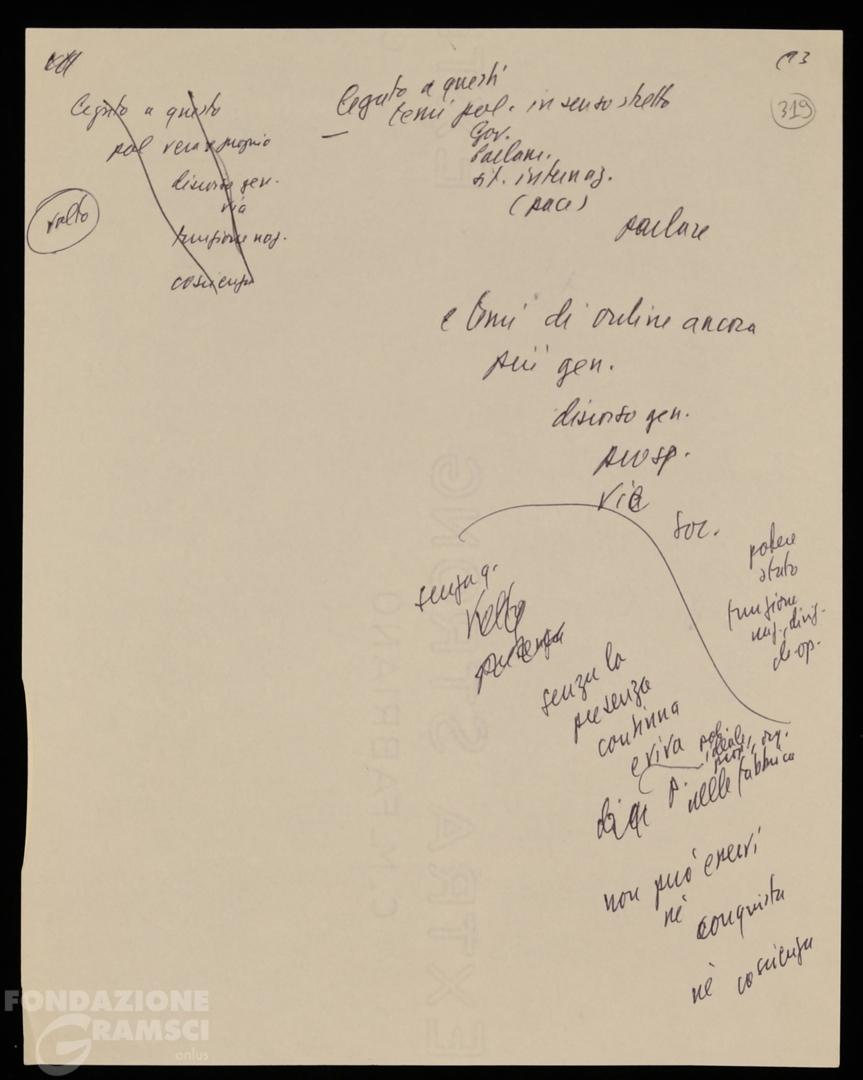 XIII
(93
319
Legato a questo
pol vera e propria
discorso gen.
via
funzione naz.
coscienza
volto
Legato a questi
temi pol. in senso stretto
Gov.
Parlam.
sit. internaz.
(pace)
parlare
e temi di ordine ancora
più gen.
discorso gen.
prosp.
via
soc.
potere
stato
funzione
naz., dirig.
cl. op.
senza q.
volto
presenza
senza la
presenza
continua
e viva pol.,
ideale,
org.
di P. nelle fabbrica
non può esservi
nè conquista
nè coscienza
C.M. FABRIANO
EXTRA STRONG
FONDAZIONE
GRAMSCI
onlus